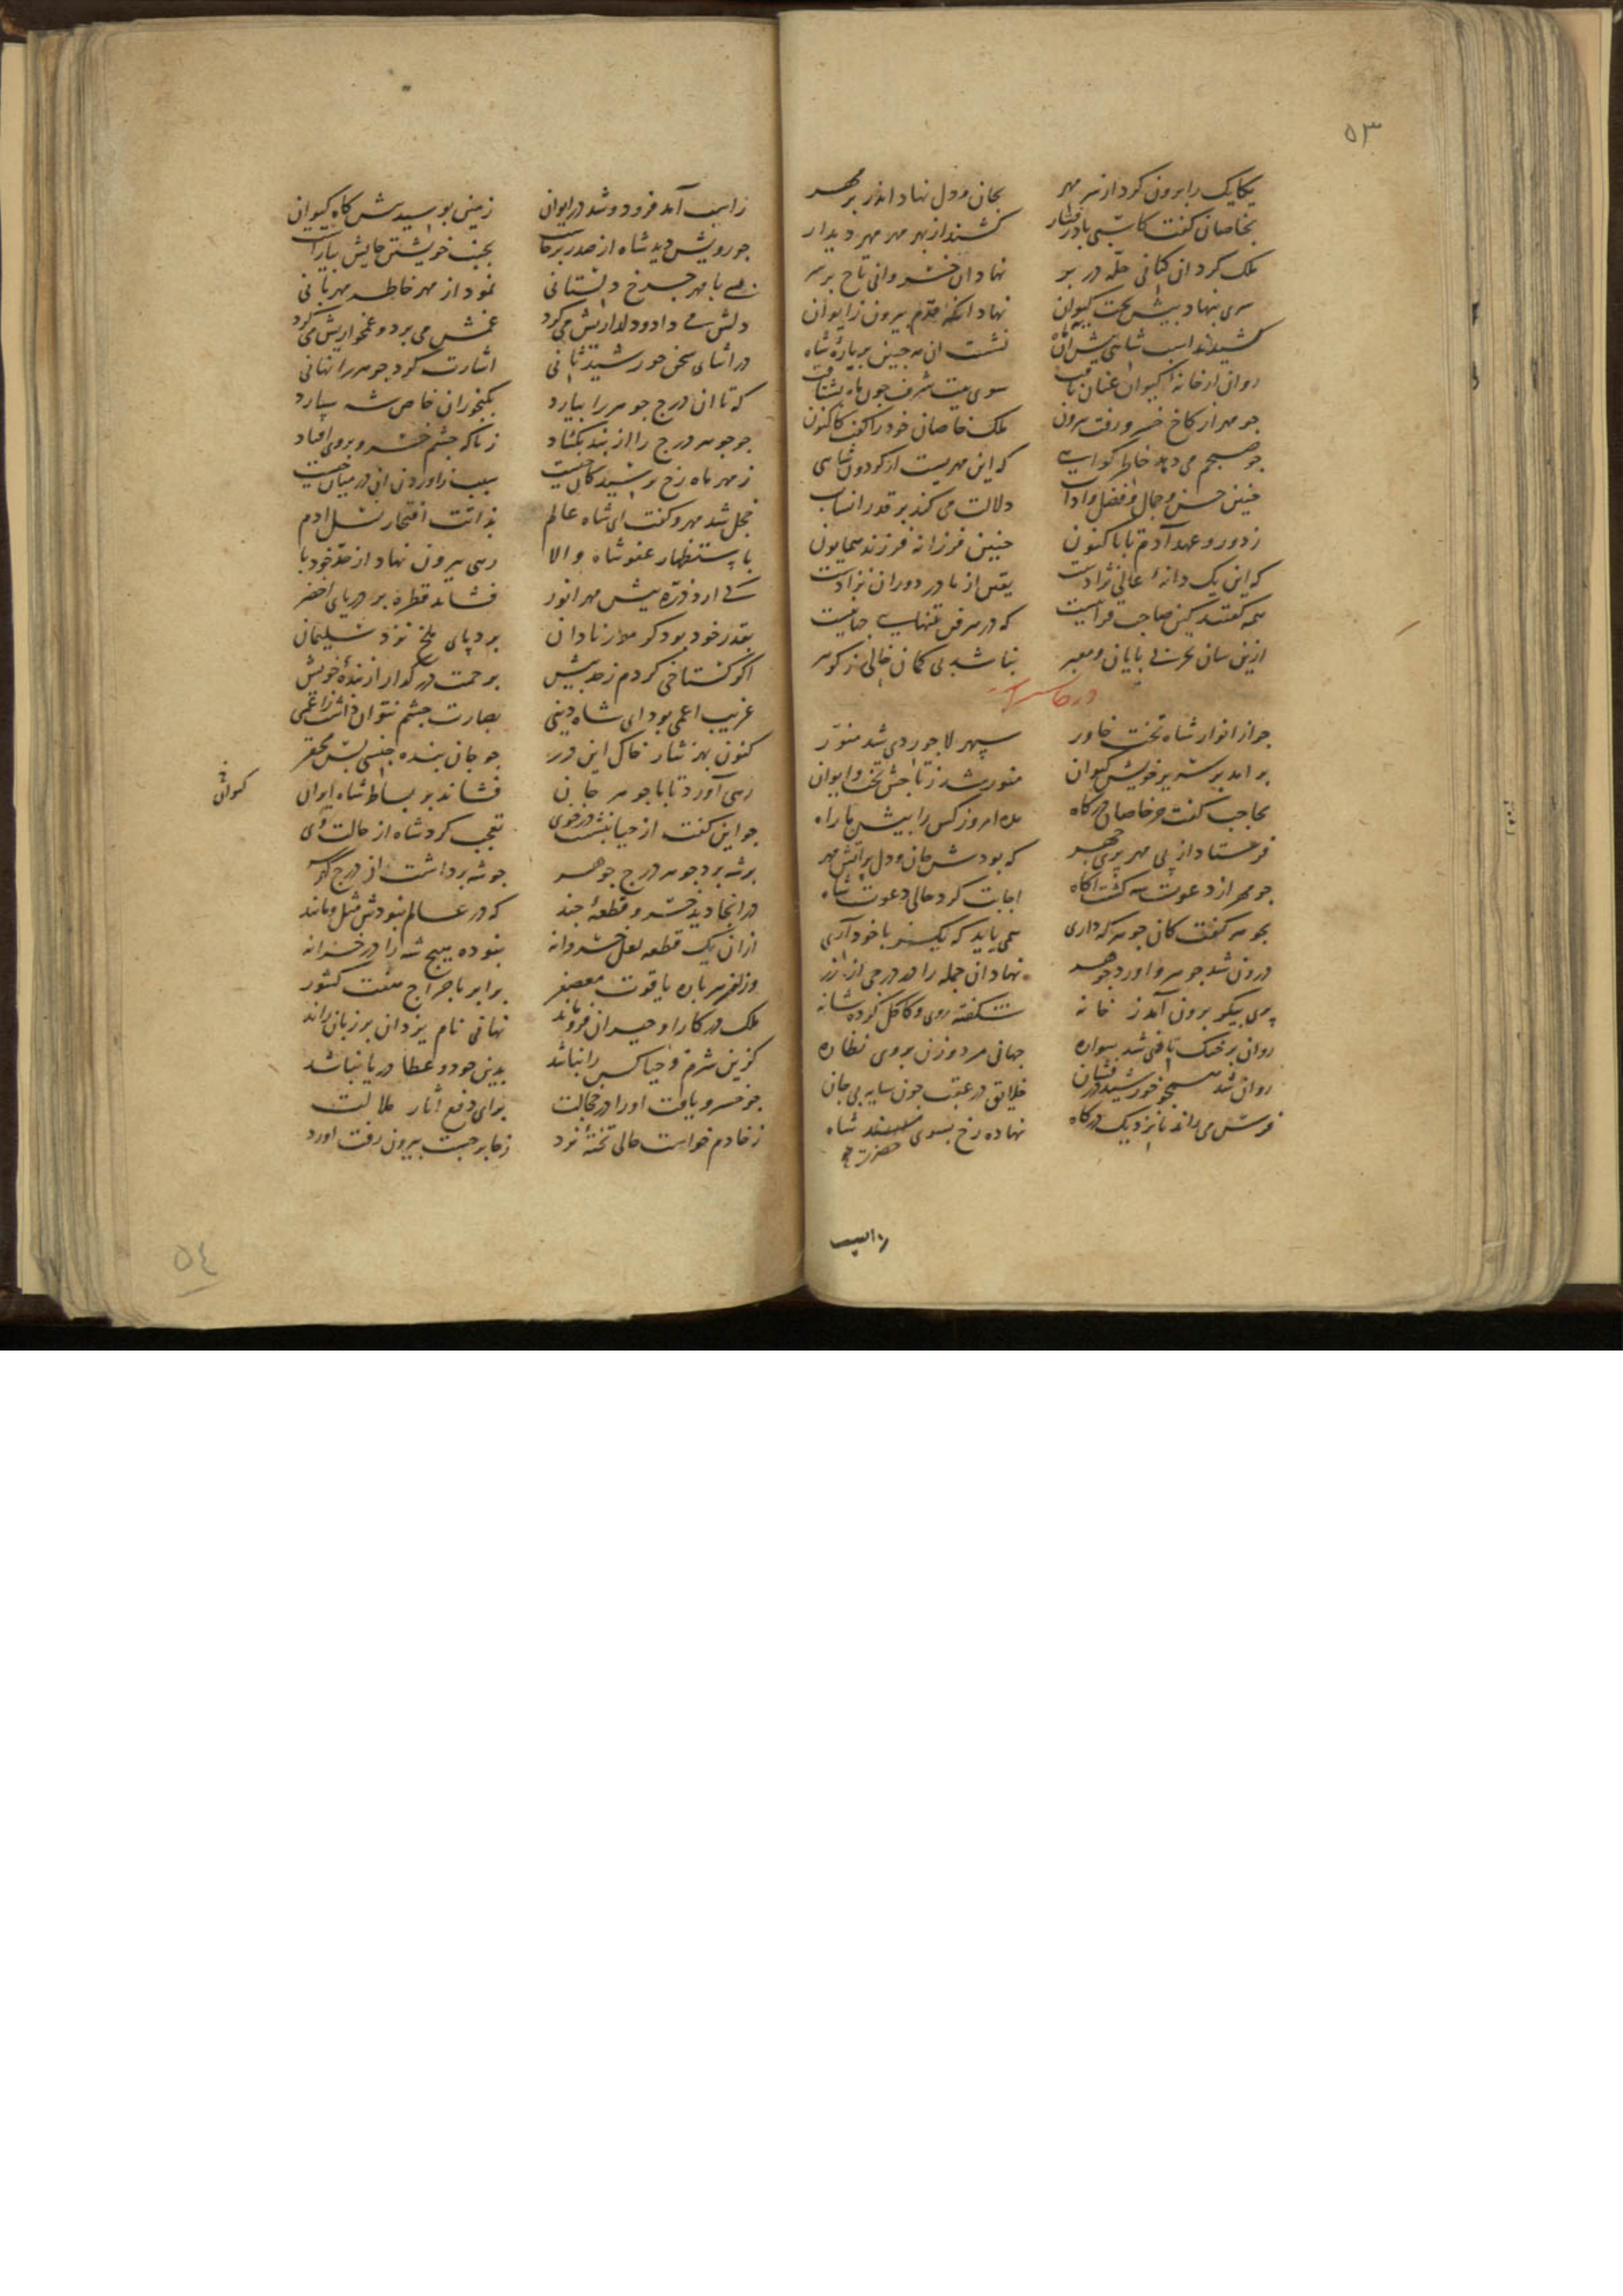 ۵۳
یکایک را برون کرد از سر مهر بجان و دل نهاد اندر بر مهر
بخاصان گفت کاسبی بادرفتار کشند از بهر مهر مهر دیدار
ملک کرد آن کتانی حله در بر نهاد آن خسروانی تاج بر سر
سری بنهاد پیش تخت کیوان نهاد آنگه قدم بیرون ز ایوان
کشیدند اسب شاهی پیش آن ماه نشست آن مه جبین بر باره شاه
روان از خانه کیوان عنان تافت سوی بیت شرف چون ماه بشتافت
چو مهر از کاخ خسرو رفت بیرون ملک خاصان خود را گفت کاکنون
چو صبحم می دهد خاطر گواهی که این مهریست از گردون شاهی
چنین حسن و جمال و فضل و آداب دلالت می کند بر قدر انساب
ز دور و عهد آدم تا باکنون چنین فرزانه فرزند همایون
که این یک دانه عالی نژادست یقین از مادر دوران نزادست
همه گفتند کین صاحب قرانیست که در هر فن تنهایی جهانیست
ازین سان بحر بی پایان و معبر نباشد بی گمان خالی ز گوهر
چو از انوار شاه تخت خاور سپهر لاجوردی شد منور
بر آمد بر سریر خویش کیوان منور شد ز تاجش تخت و ایوان
بحاجب گفت جز خاصان درگاه مده امروز کس را پیش ما راه
فرستاد از پی مهر پری چهر که بودش جان و دل بر آتش مهر
چو مهر از دعوت شه گشت آگاه اجابت کرد حالی دعوت شاه
بجوهر گفت کان جوهر که داری همی باید که یکسر با خود آری
درون شد جوهر و آورد جوهر نهاد آن جمله را در درجی از زر
پری پیکر برون آمد ز خانه شکفته روی و کاکل کرده شانه
روان بر خنگ تافی شد سواره جهانی مرد و زن بروی نظاره
روان شد همچو خورشید درفشان خلایق در عقب چون سایه بی جان
فرس می راند تا نزدیک درگاه نهاده رخ بسوی مسند شاه
حضرت
ز اسب
ز اسب آمد فرود و شد در ایوان زمین بوسید پیش گاه کیوان
چو رویش دید شاه از صدر برخاست بجنب خویشتن جایش بیاراست
دمی با مهر چرخ دلستانی نمود از مهر خاطر مهربانی
دلش می داد و دلداریش می کرد غمش می برد و غمخواریش می کرد
در اثنای سخن خورشید ثانی اشارت کرد جوهر را نهانی
که تا آن درج جوهر را بیارد بگنجوران خاص شه سپارد
چو جوهر درج را از بند بگشاد ز ناگه چشم خسرو بروی افتاد
ز مهر ماه رخ پرسید کان چیست سبب ز آوردن این در میان چیست
خجل شد مهر و گفت ای شاه عالم بذاتت افتخار نسل آدم
باستظهار عفو شاه والا رهی بیرون نهاد از حد خود پا
کی آرد ذره پیش مهر انور فشاند قطره بر دریای اخضر
بقدر خود بود گر مور نادان برد پای ملخ نزد سلیمان
اگر گستاخی کردم ز حد بیش برحمت درگذار از بنده خویش
غریب اعمی بود ای شاه دینی بصارت چشم نتوان داشت ز اعمی
کنون بهر نثار خاک این در چو جان بنده جنسی بس محقر
رهی آورد تا با جوهر جان فشاند بر بساط شاه ایران
چو این گفت از حیا بنشست در خوی تعجب کرد شاه از حالت وی
بر شه برد جوهر درج جوهر چو شه برداشت از درج گوهر
در آنجا دید خسرو قطعه چند که در عالم نبودش مثل و مانند
از آن یک قطعه لعل خسروانه نبوده هیچ شه را در خزانه
برابر با خراج هفت کشور
ملک در کار او حیران فرو ماند نهانی نام یزدان بر زبان راند
کزین شرم و حیا کس را نباشد بدین جود و عطا دریا نباشد
چو خسرو یافت او را در خجالت برای دفع آثار ملالت
ز خادم خواست حالی تخته نرد ز جا برجست بیرون رفت آورد
۵٤